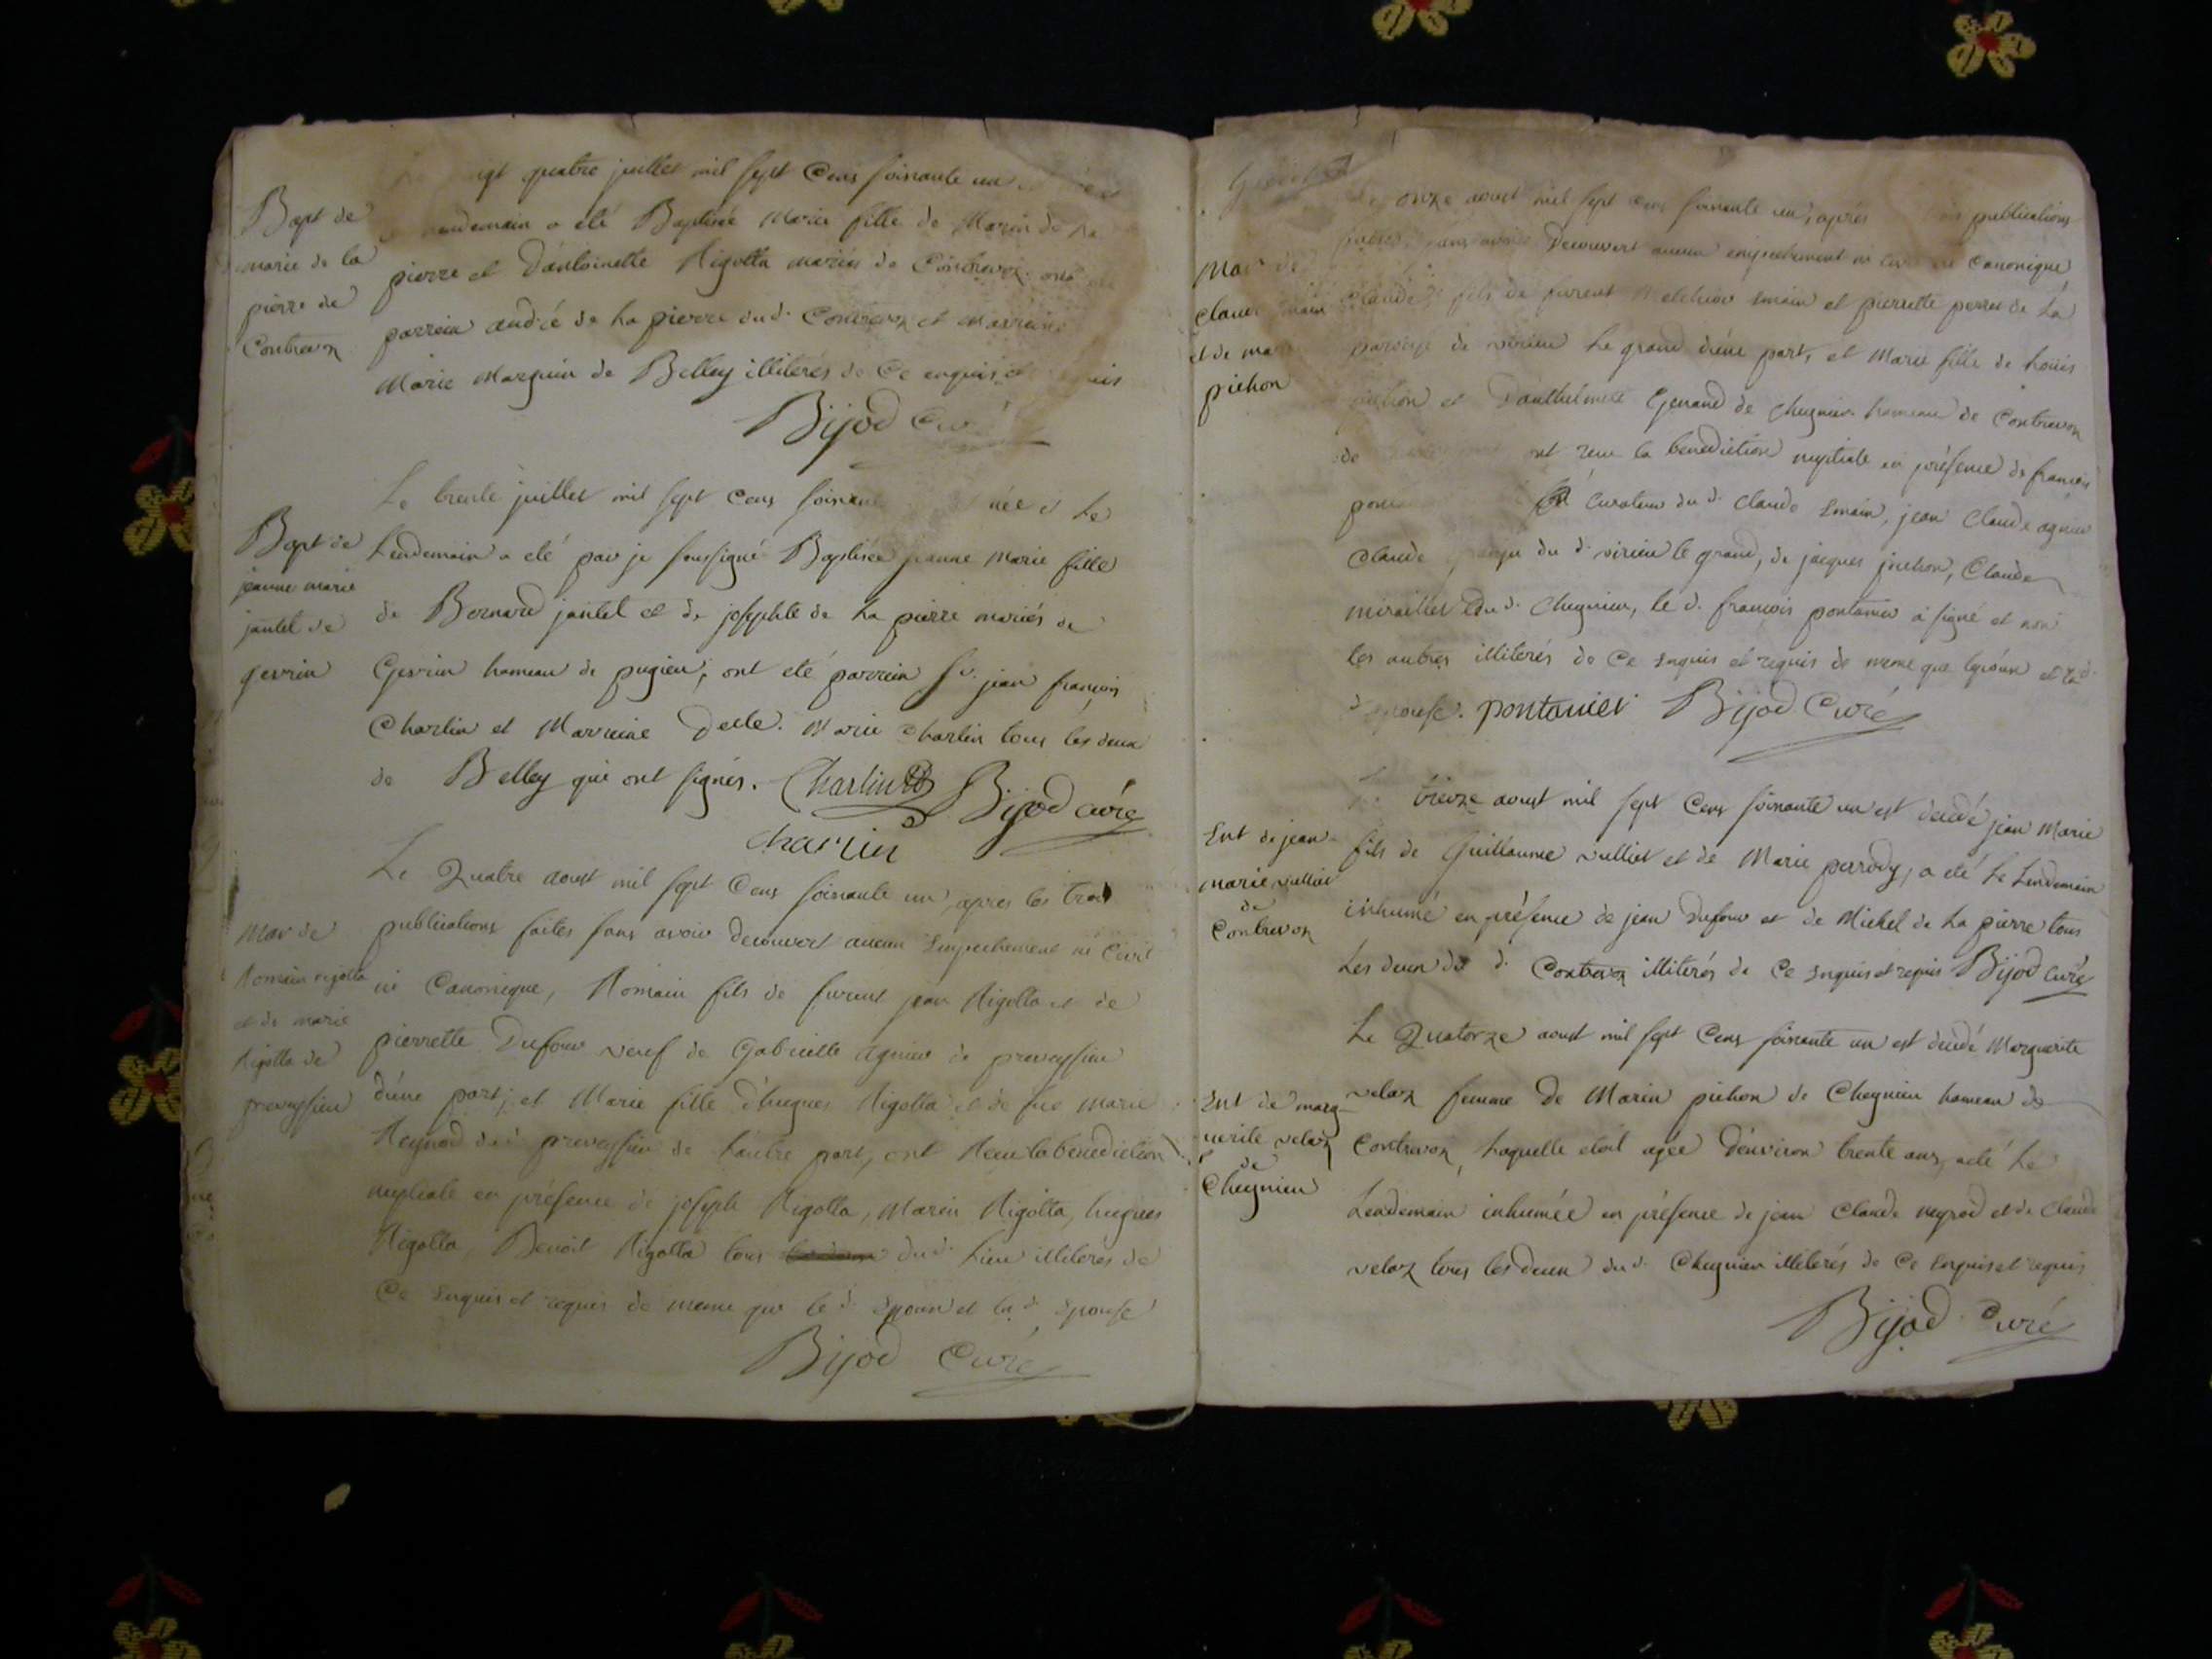 quatre juillet mil sept Cens soixante un
Bapt de
marie de la
pierre de
Contrevoz
lendemain a eté Baptisée Marie fille de Marin de La
pierre et D'antoinette Rigotta mariés de Contrevoz. ont été
parrein André de La pierre dud. Contrevoz et Marreine
Marie Marguin de Belley illiterés de Ce enquis et
Bijod Curé
Le trente juillet mil sept Cens soixante née et Le
Bapt de
jeanne marie
jantet de
gevrin
Lendemain a eté par je soussigné Baptisée jeanne Marie fille
de Bernard jantet et de josephte de La pierre mariés de
Gevrin hameau de pugieu; ont eté parrein Sr. jean françois
Charlin et Marreine Delle. Marie Charlin tous les deux
de Belley qui ont signés. Charlin Bijod curé
Charlin
Le Quatre aoust mil sept Cens soixante un, apres les trois
Mar de
Romain rigotta
et de marie
Rigotta de
preveyssieu
publications faites sans avoir decouvert aucun Empechement ni Civil
ni Canonique, Romain fils de furent jean Rigotta et de
pierrette Dufour veuf de Gabrielle agnieu de preveyssieu
d'une part; et Marie fille d'hugues Rigotta et de fue Marie
Reynaud dud preveyssieu de L'autre part, ont Reçu la benediction
nuptiale en présence de joseph Rigotta, Marin Rigotta, hugues
Rigotta, Benoit Rigotta tous dud. Lieu illiterés de
Ce Enquis et requis de meme que le d. Epoux et la d. Epouse
Bijod Curé
onze aoust mil sept Cens soixante un, aprés publications
Mar de
Claude
et de marie
pichon
faites, sans avoir Decouvert aucun empechement ni Canonique
Claude fils de furent Melchior Emain et pierrette perret de La
paroisse de virieu Le grand d'une part, et Marie fille de Loüis
pichon et D'anthelmette Genand de Chegnieu hameau de Contrevoz
de ont reçu la benediction nuptiale en présence de françois
Curateur du d. Claude Emain, jean Claude agnieu
Claude du d. virieu le grand, de jacques pichon, Claude
miraillet dud. Chegnieu, le d. françois pontanier a signé et non
les autres illiterés de Ce Enquis et requis de meme que lepoux et la d.
Epouse. pontanier Bijod Curé
Le treize aoust mil sept Cens soixante un est decedé jean Marie
Ent de jean
marie vulliet
de
Contrevoz
fils de Guillaume vulliet et de Marie perrody, a eté Le Lendemain
inhumé en présence de jean Dufour et de Michel de La pierre tous
Les deux du d. Contrevoz illiterés de Ce Enquis et requis Bijod curé
Le Quatorze aoust mil sept Cens soixante un est decedé Marguerite
Ent de marg-
uerite velaz
de
Chegnieu
velaz femme de Marin pichon de Chegnieu hameau de
Contrevoz, Laquelle etoit agée D'environ trente ans, a eté Le
Lendemain inhumée en présence de jean Claude neyrod et de Claude
velaz tous les deux dud. Chegnieu illiterés de Ce Enquis et requis
Bijod Curé